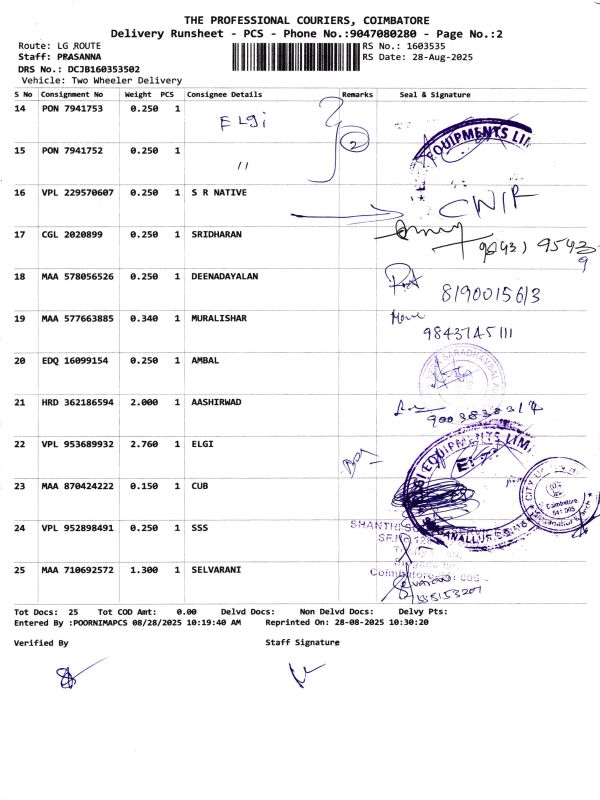 THE PROFESSIONAL COURIERS, COIMBATORE
Delivery Runsheet - PCS - Phone No.:9047080280 - Page No.:2
Route: LG ROUTE RS No.: 1603535
Staff: PRASANNA RS Date: 28-Aug-2025
DRS No.: DCJB160353502
Vehicle: Two Wheeler Delivery
S No Consignment No Weight PCS Consignee Details Remarks Seal & Signature
14 PON 7941753 0.250 1 ELgi
2
EQUIPMENTS LIM
15 PON 7941752 0.250 1 "
16 VPL 229570607 0.250 1 S R NATIVE
17 CGL 2020899 0.250 1 SRIDHARAN
18 MAA 578056526 0.250 1 DEENADAYALAN 8190015613
19 MAA 577663885 0.340 1 MURALISHAR 9843745111
20 EDQ 16099154 0.250 1 AMBAL SARADHAMBAL
21 HRD 362186594 2.000 1 AASHIRWAD
22 VPL 953689932 2.760 1 ELGI EQUIPMENTS LIM
23 MAA 870424222 0.150 1 CUB CITY Coimbatore
24 VPL 952898491 0.250 1 SSS SHANTHI
25 MAA 710692572 1.300 1 SELVARANI Coimbatore
Tot Docs: 25 Tot COD Amt: 0.00 Delvd Docs: Non Delvd Docs: Delvy Pts:
Entered By :POORNIMAPCS 08/28/2025 10:19:40 AM Reprinted On: 28-08-2025 10:30:20
Verified By Staff Signature